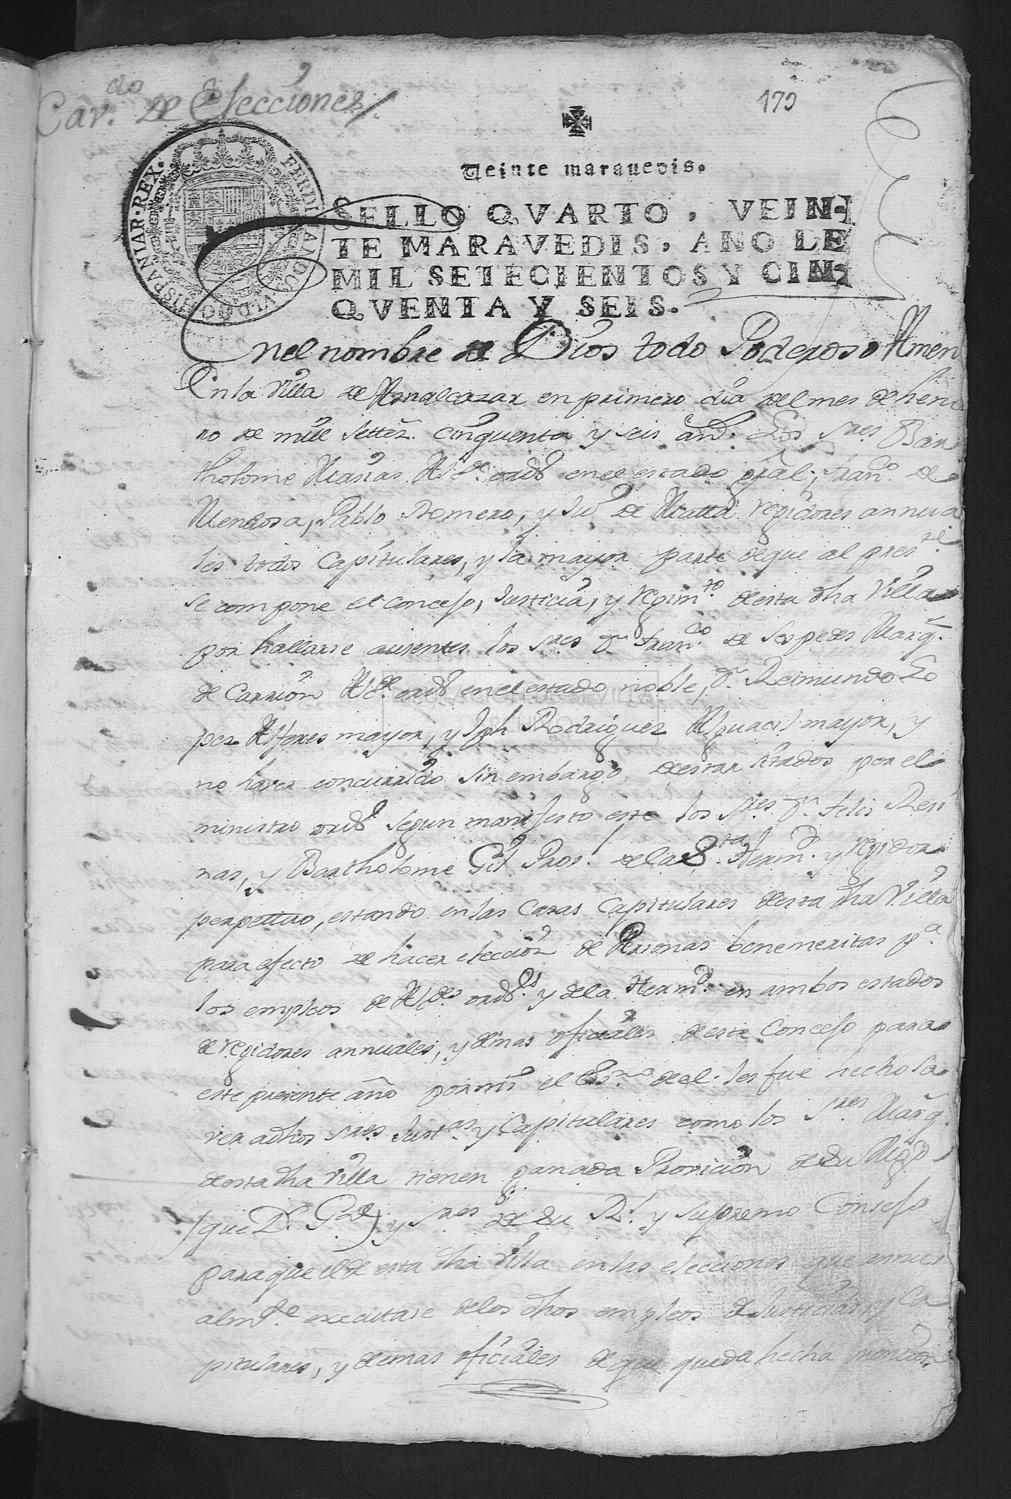 Cav.do de Elecciones
179
Veinte maravedis.
HISPANIAR·REX· FERDINANDUS·VI·D·G·
SELLO QVARTO, VEIN-
TE MARAVEDIS, AÑO DE
MIL SETECIENTOS Y CIN-
QVENTA Y SEIS.
En el nombre de Dios todo Poderoso Amen
En la Villa de Aznalcazar en primero dia del mes de hene
ro de mill settez. cinquenta y seis añs. Los Sres Bar
tholome Macias Alde. ordo. en el estado gral; Franco. de
Mendosa, Pablo Romero, y Jun de Matta regidores annua
les todos Capitulares, y la mayor parte de que al preste
se compone el consejo, Justicia, y regimto desta dha Villa
por hallarse ausentes los Sres Dn Franco de Sespedes Marq.
de Carrion Alde ordo en el estado noble, Dn Reimundo Lo
pez Alferes mayor, y Jph Rodriguez Alguacil mayor, y
no haver concurrido sin embargo de estar sitados por el
ministro ordo. segun manifesto este los Sres Dn Felis Resi
nas, y Bartholome Gil Pros. de la Sta Hermd. y regidor
perpettuo, estando en las Casas Capitulares desta dha Villa
para efecto de hacer eleccion de Personas benemeritas pa.
los empleos de Aldes ordos. y de la Hermd. en ambos estados
de regidores annuales, y demas oficiales de este Consejo para
este presente año por mi el Esno. de el. les fue hecho sa
ver a dhos Sres Justas y Capitulares como los Sres Marq.
desta dha Villa tienen ganada Provicion de Su Magd
(que Ds. Gde) y Sres de Su Rl. y Supremo Consejo
para que el de esta dha Villa en las elecciones que annu
almte executase de los dhos empleos de Justicias y Ca
pitulares, y demas oficiales de que queda hecha mencion